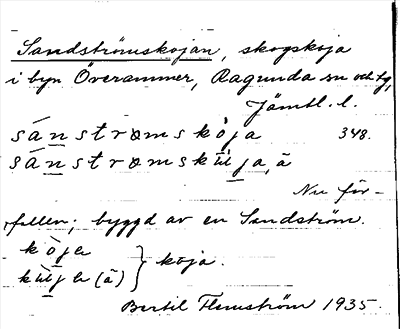 Sandströmskojan, skogskoja
i byn Överammer, Ragunda sn och tg,
Jämtl. l.
sánstrømskòja 348.
sánstrømskʉ̀lja, ä
Nu för-
fallen; byggd av en Sandström.
kòja
kʉ̀lja (ä) } koja.
Bertil Flemström 1935.